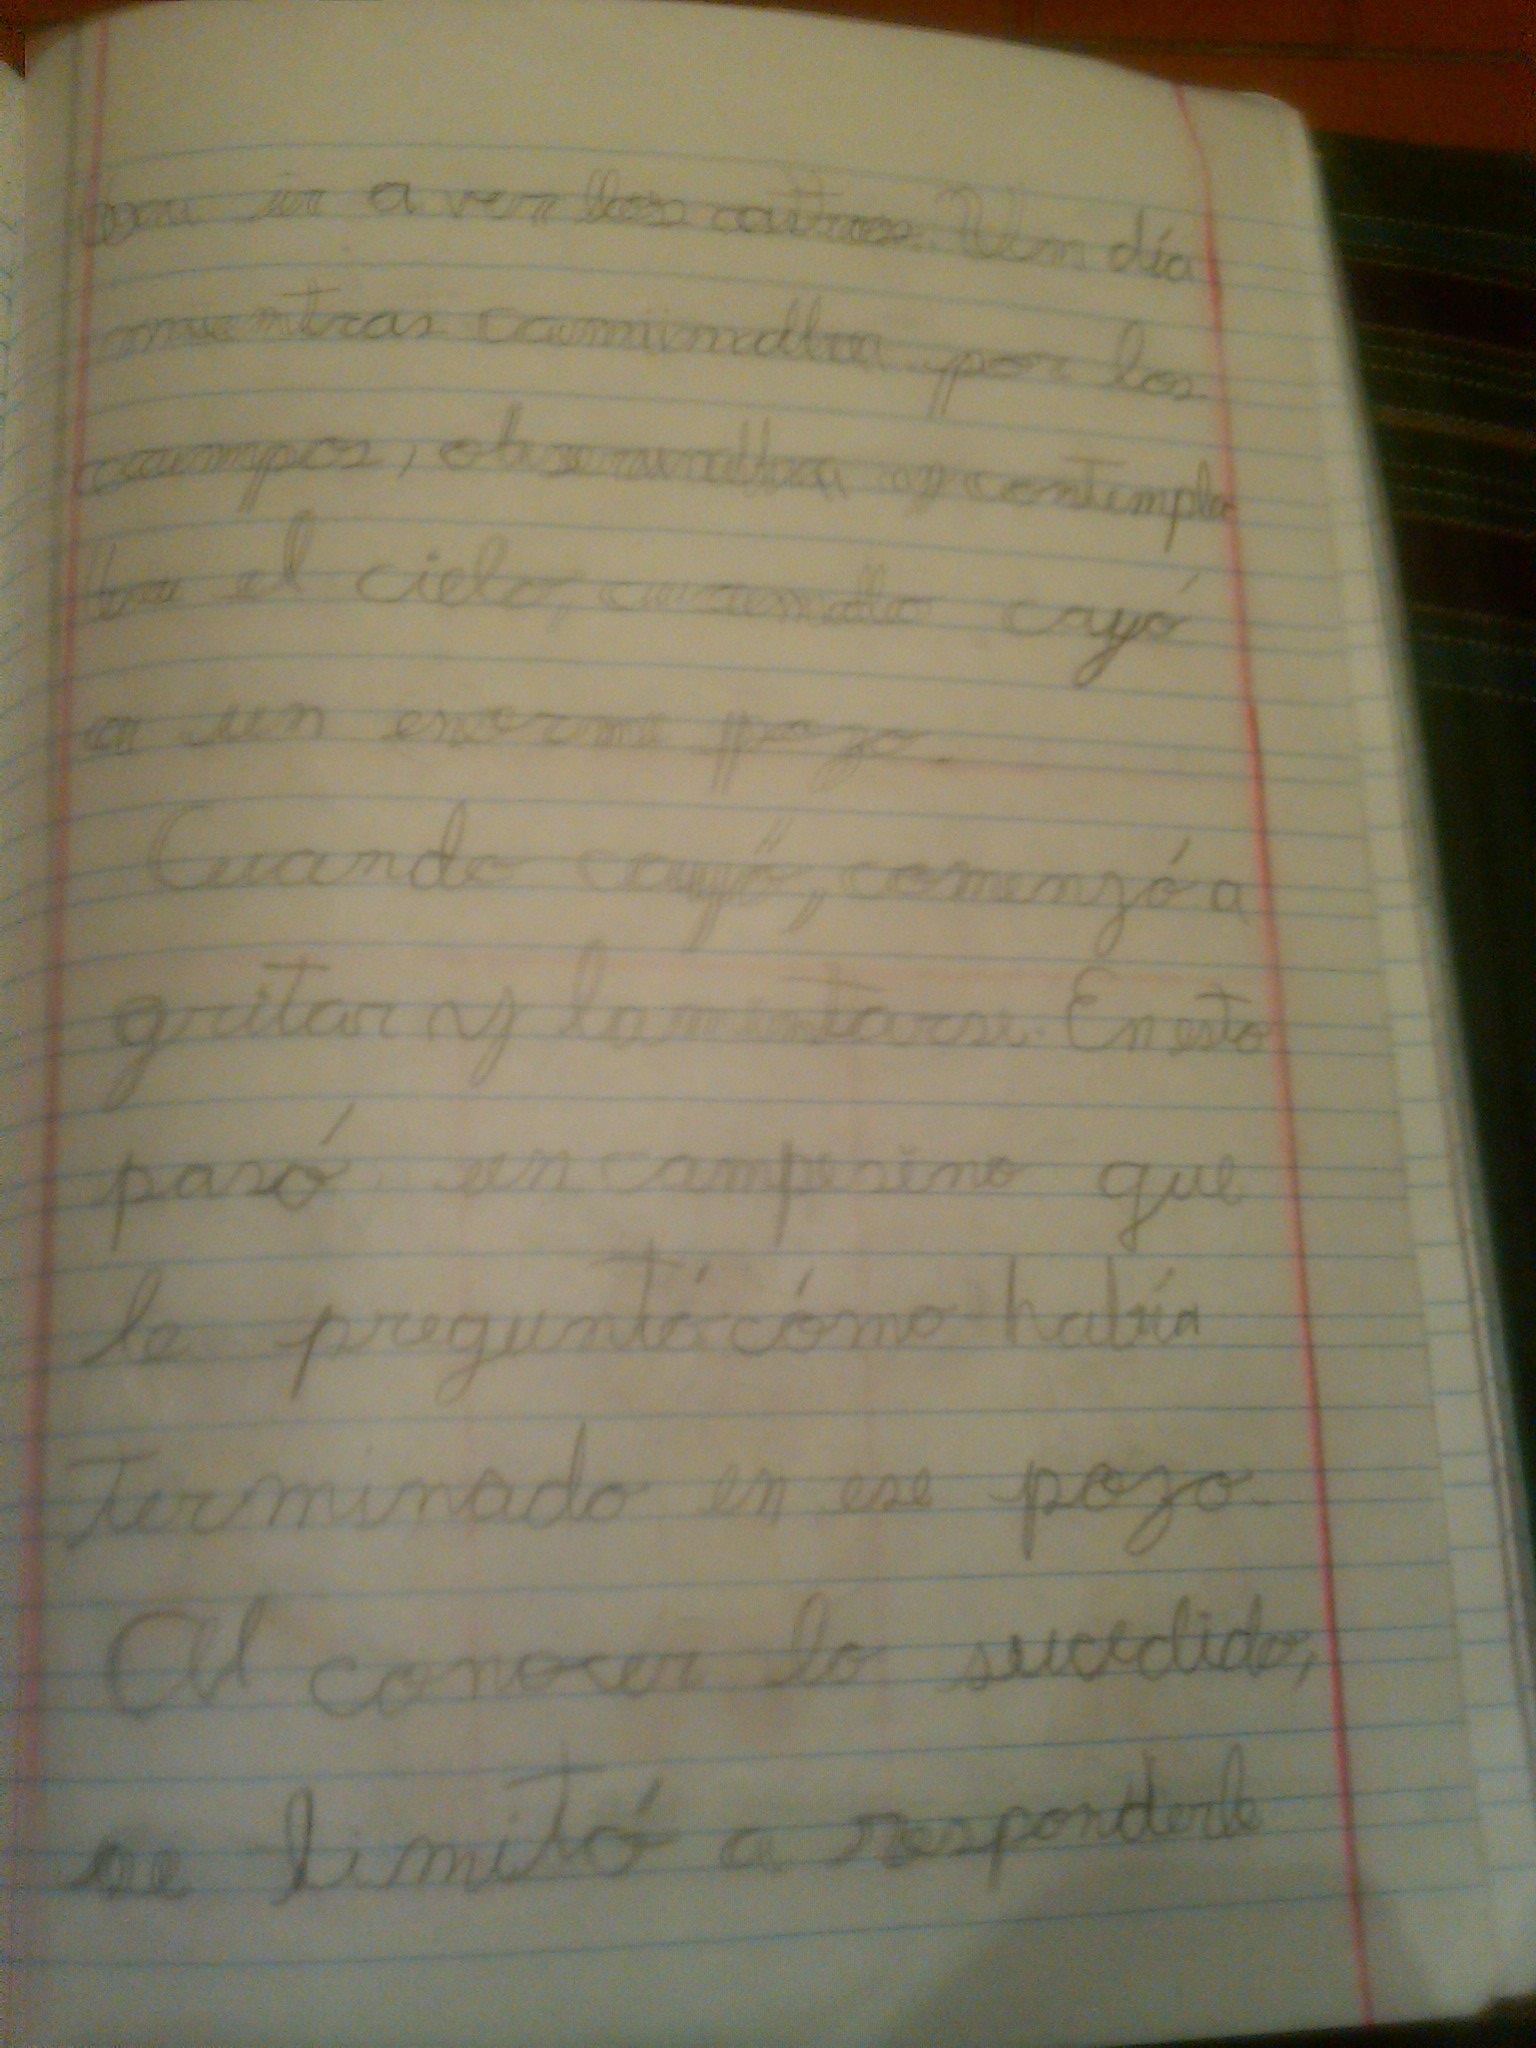 era ir a ver los astros. Un día
mientras caminaba por los
campos, observaba y contempla
ba el cielo, cuando cayó
en un enorme pozo.
Cuando cayó, comenzó a
gritar y lamentarse. En esto
pasó un campesino que
le preguntó cómo había
terminado en ese pozo.
Al conocer lo sucedido,
se limitó a responderle